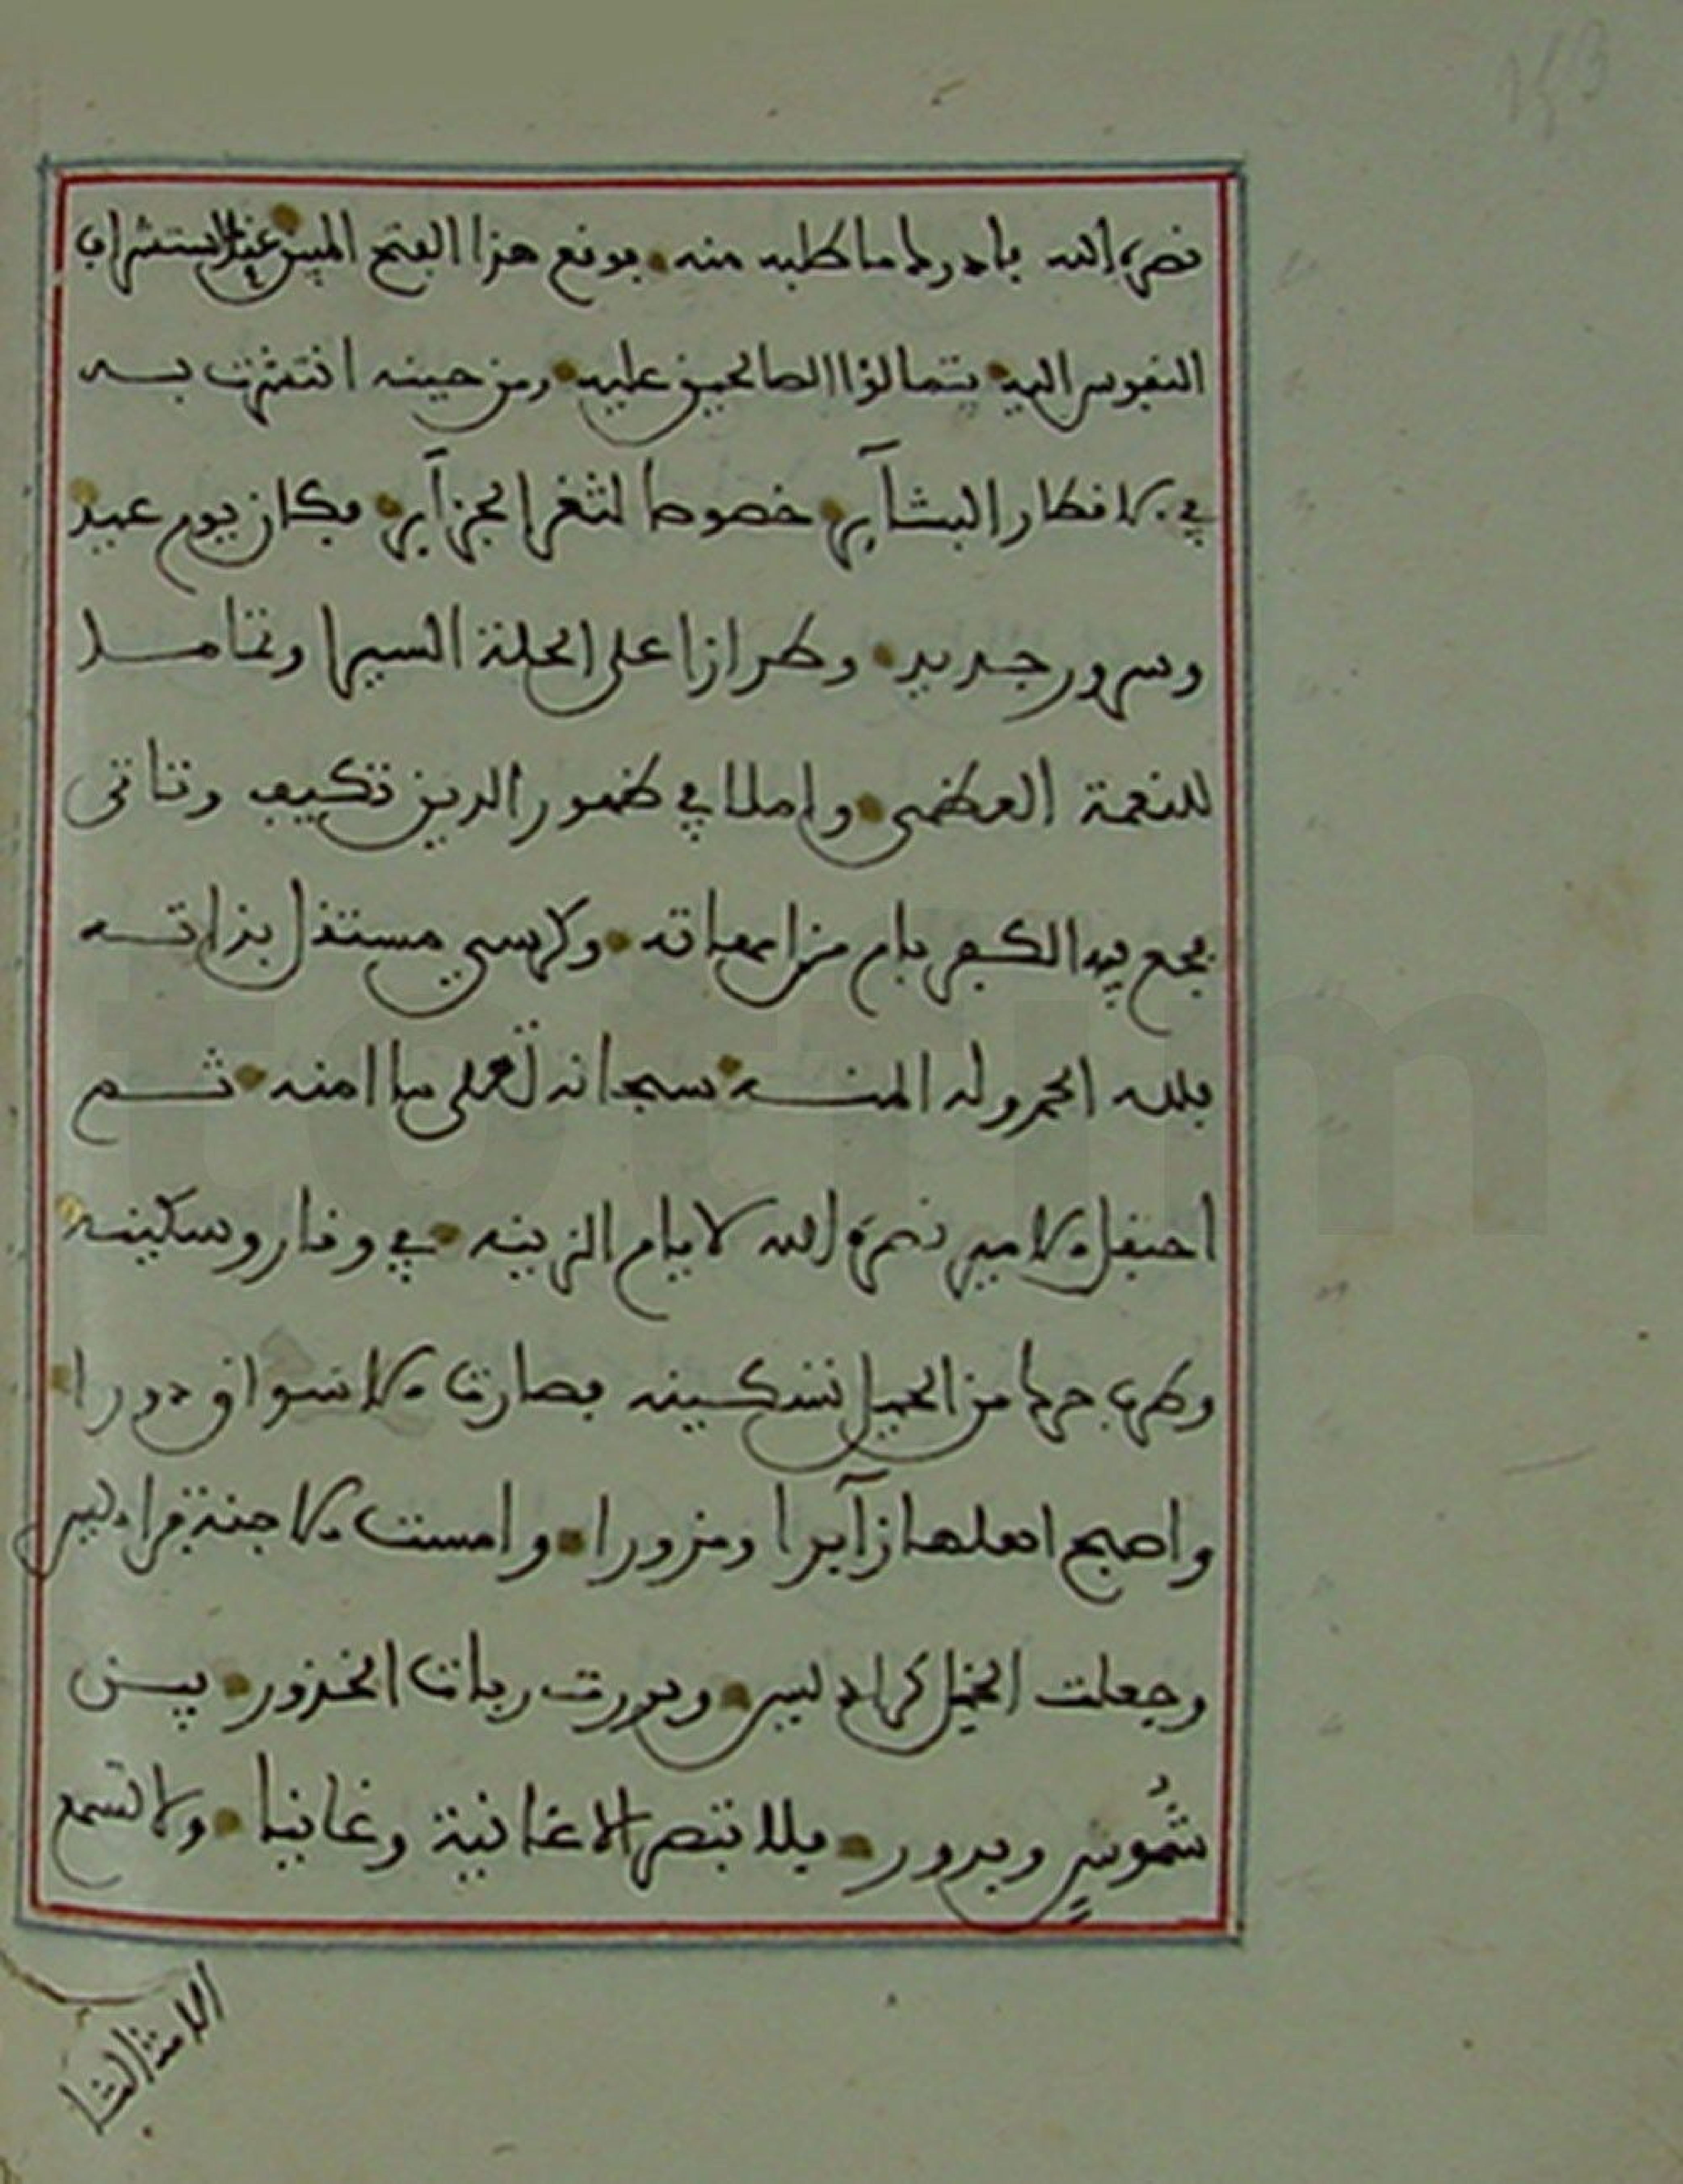 نصره الله بادر لما طلبه منه فوقع هذا الفتح المبين عند استشراف
النفوس اليه بتمالؤا الصالحين عليه ومن حينه انتشرت به
في الاقطار البشآير خصوصا لثغر الجزآير فكان يوم عيد
وسرور جديد وطرازا على الحلة السيرا وتمامـا
للنعمة العظمى واملا في ظهور الدين تكيف وتاتى
فجع فيه الكفر بام من امهاته وكرسي مستقل بذاته
فلله الحمد وله المنـه سبحانه تعلى ما امنه ثـم
احتفل الامير نصره الله لايام الزينه في وقار وسكينه
وطرب حرك من الجبل تسكينه فصارت الاسواق دورا
واصبح اهلها زآيرا ومزورا وامست الاجنة فراديس
وجعلت الخيل كراديس وبورت ربات الخدور بيـن
شُموسٍ وبدور فلا تبصر الا غانية وغانيا ولا تسمع
الا مثالثا
153